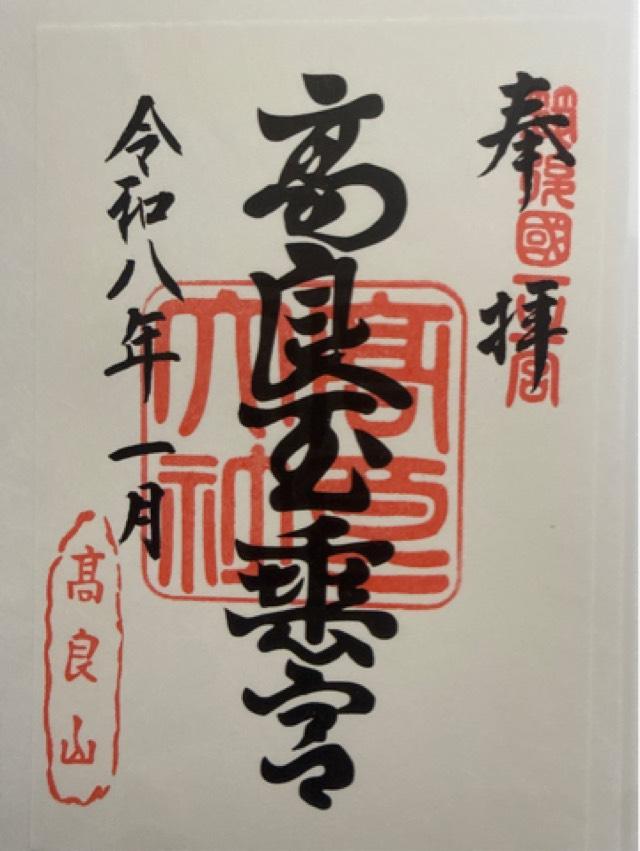 奉拝
筑後國一宮
高良玉垂宮
高良大社
令和八年 一月
髙良山